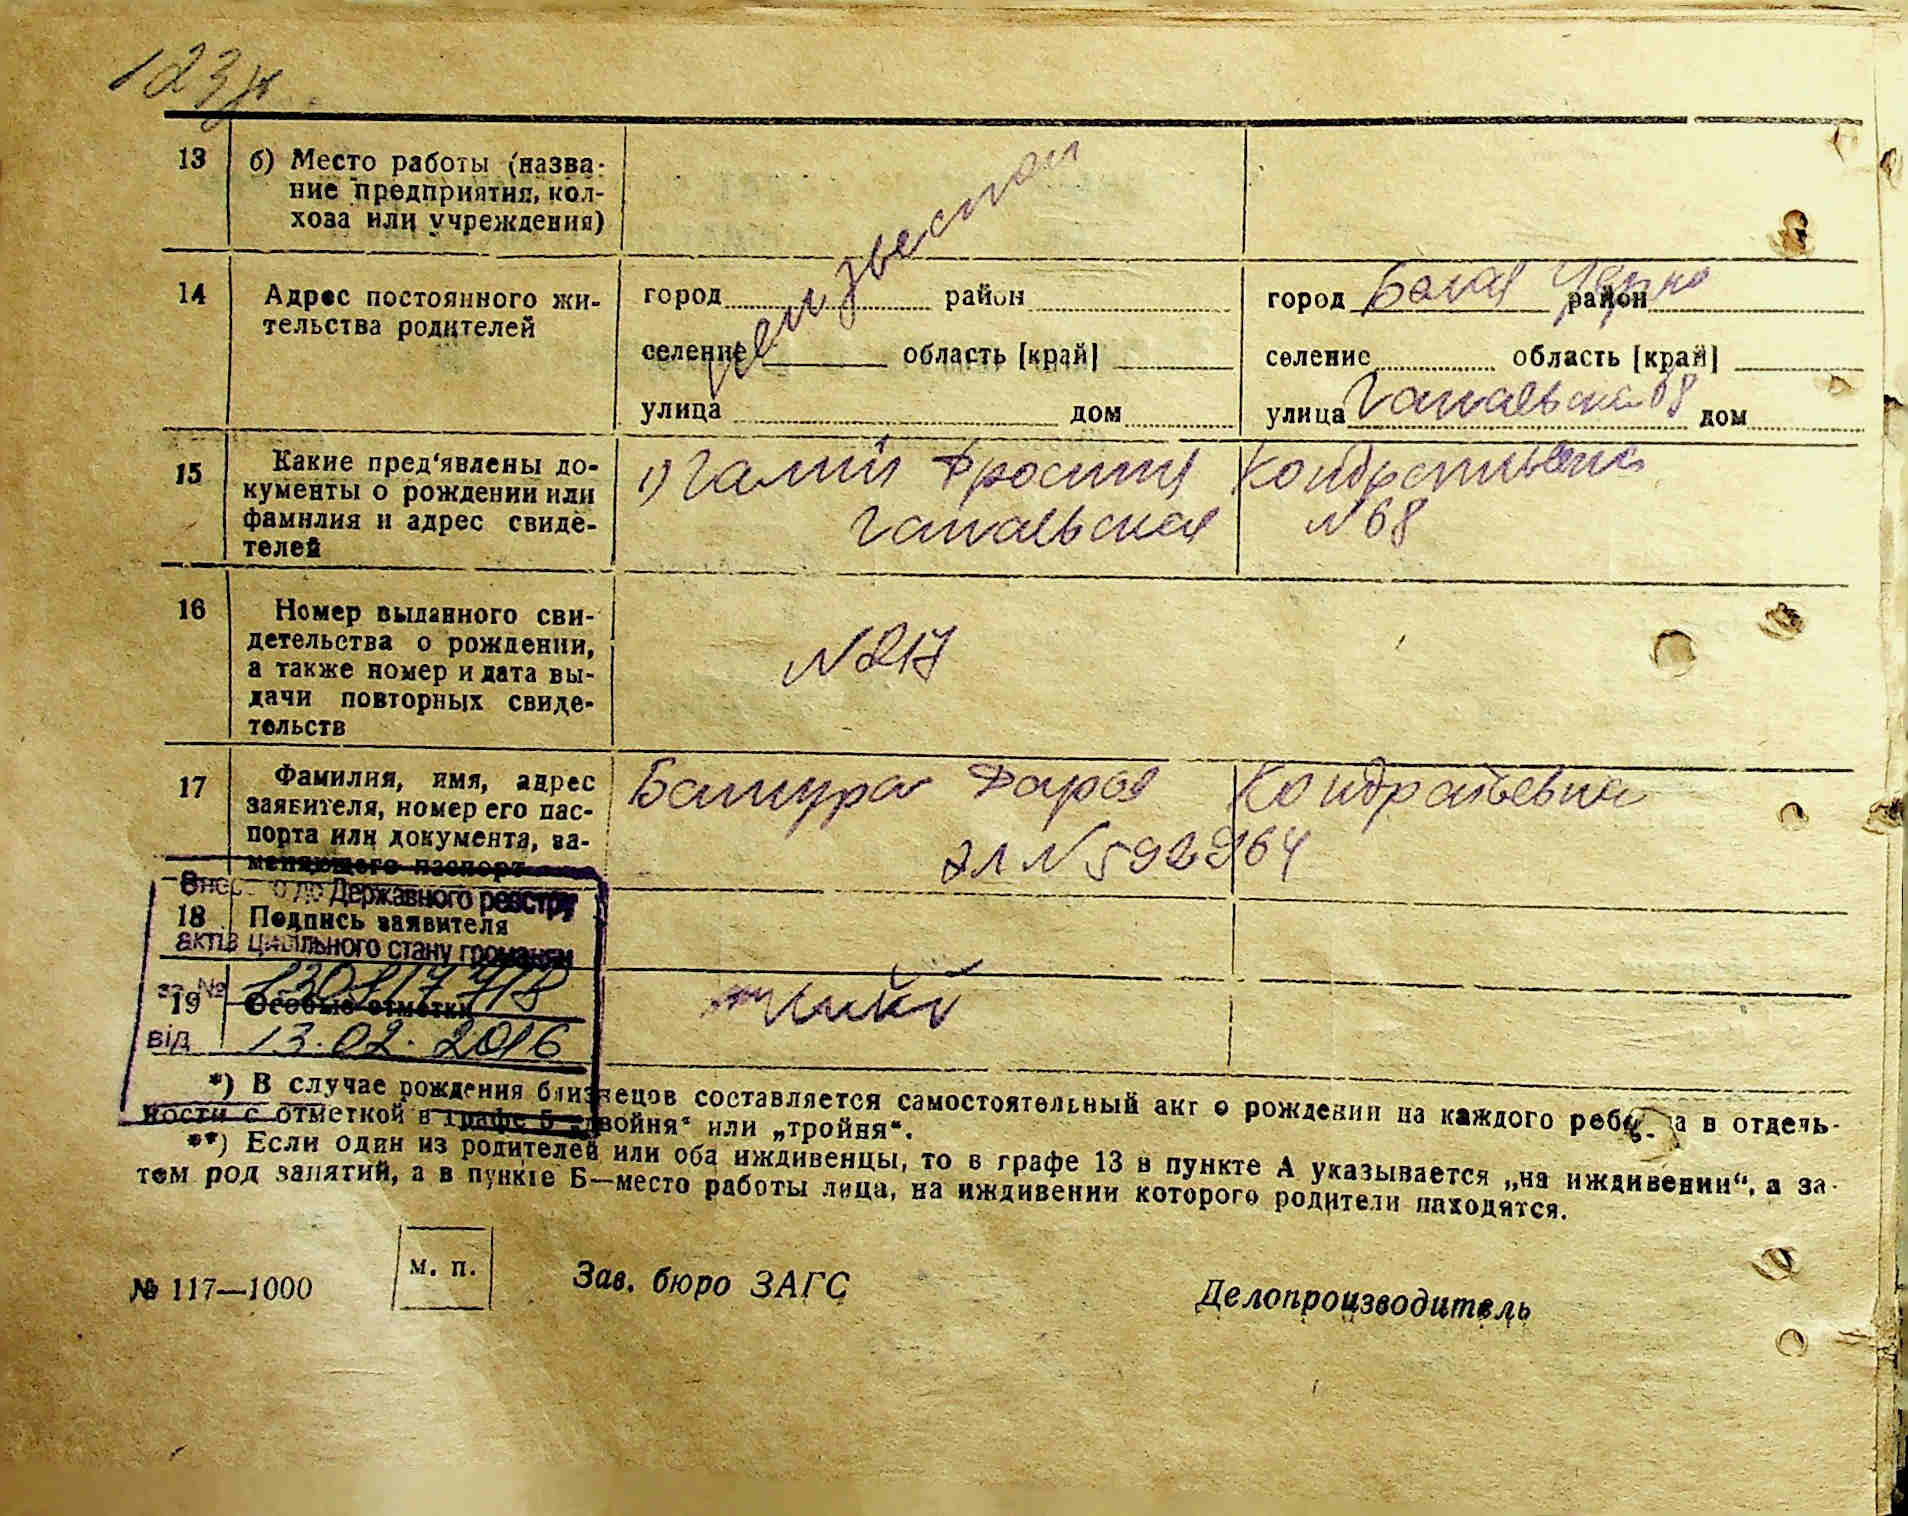 13 б) Место работы (назва-
ние предприятия, кол-
хоза или учреждения)
неизвестен
14 Адрес постоянного жи-
тельства родителей
город район
селение область [край]
улица дом
город Белая Церковь район
селение область [край]
улица 68 дом
15 Какие пред'явлены до-
кументы о рождении или
фамилия и адрес свиде-
телей
1)
№ 68
16 Номер выданного сви-
детельства о рождении,
а также номер и дата вы-
дачи повторных свиде-
тельств
№ 217
17 Фамилия, имя, адрес
заявителя, номер его пас-
порта или документа, за-
меняющего паспорт
Башура Дарья Кондратьевна
№ 592964
Внесено до Державного реєстру
18 Подпись заявителя
актів цивільного стану громадян
за №
19 Особые отметки
від 13.02.2016
*) В случае рождения близнецов составляется самостоятельный акт о рождении на каждого ребенка в отдель-
ности с отметкой в графе 5 „двойня“ или „тройня“.
**) Если один из родителей или оба иждивенцы, то в графе 13 в пункте А указывается „на иждивении“, а за-
тем род занятий, а в пункте Б—место работы лица, на иждивении которого родители находятся.
№ 117—1000
м. п.
Зав. бюро ЗАГС
Делопроизводитель